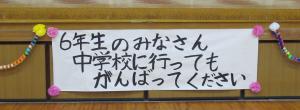 6年生のみなさん
中学校に行っても
がんばってください